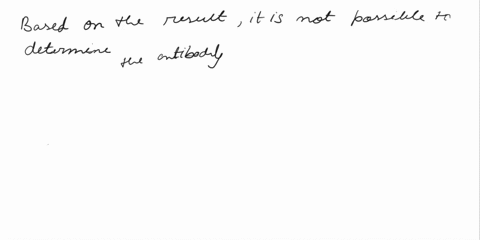 Based on the result, it is not possible to
determine the antibody